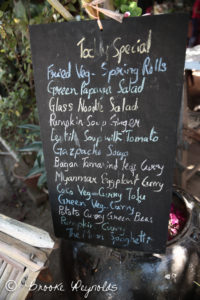 Today Special
Fried Veg - Spring Rolls
Green Papaya Salad
Glass Noodle Salad
Pumpkin Soup Ginger
Lentils Soup with Tomato
Gazpacho Soup
Bagan Tamarind Leaf Curry
Myanmar Eggplant Curry
Coco Veg Curry Tofu
Green Veg. Curry
Potato Curry Green Beans
Pumpkin Curry
Spaghetti
© Brooke Reynolds